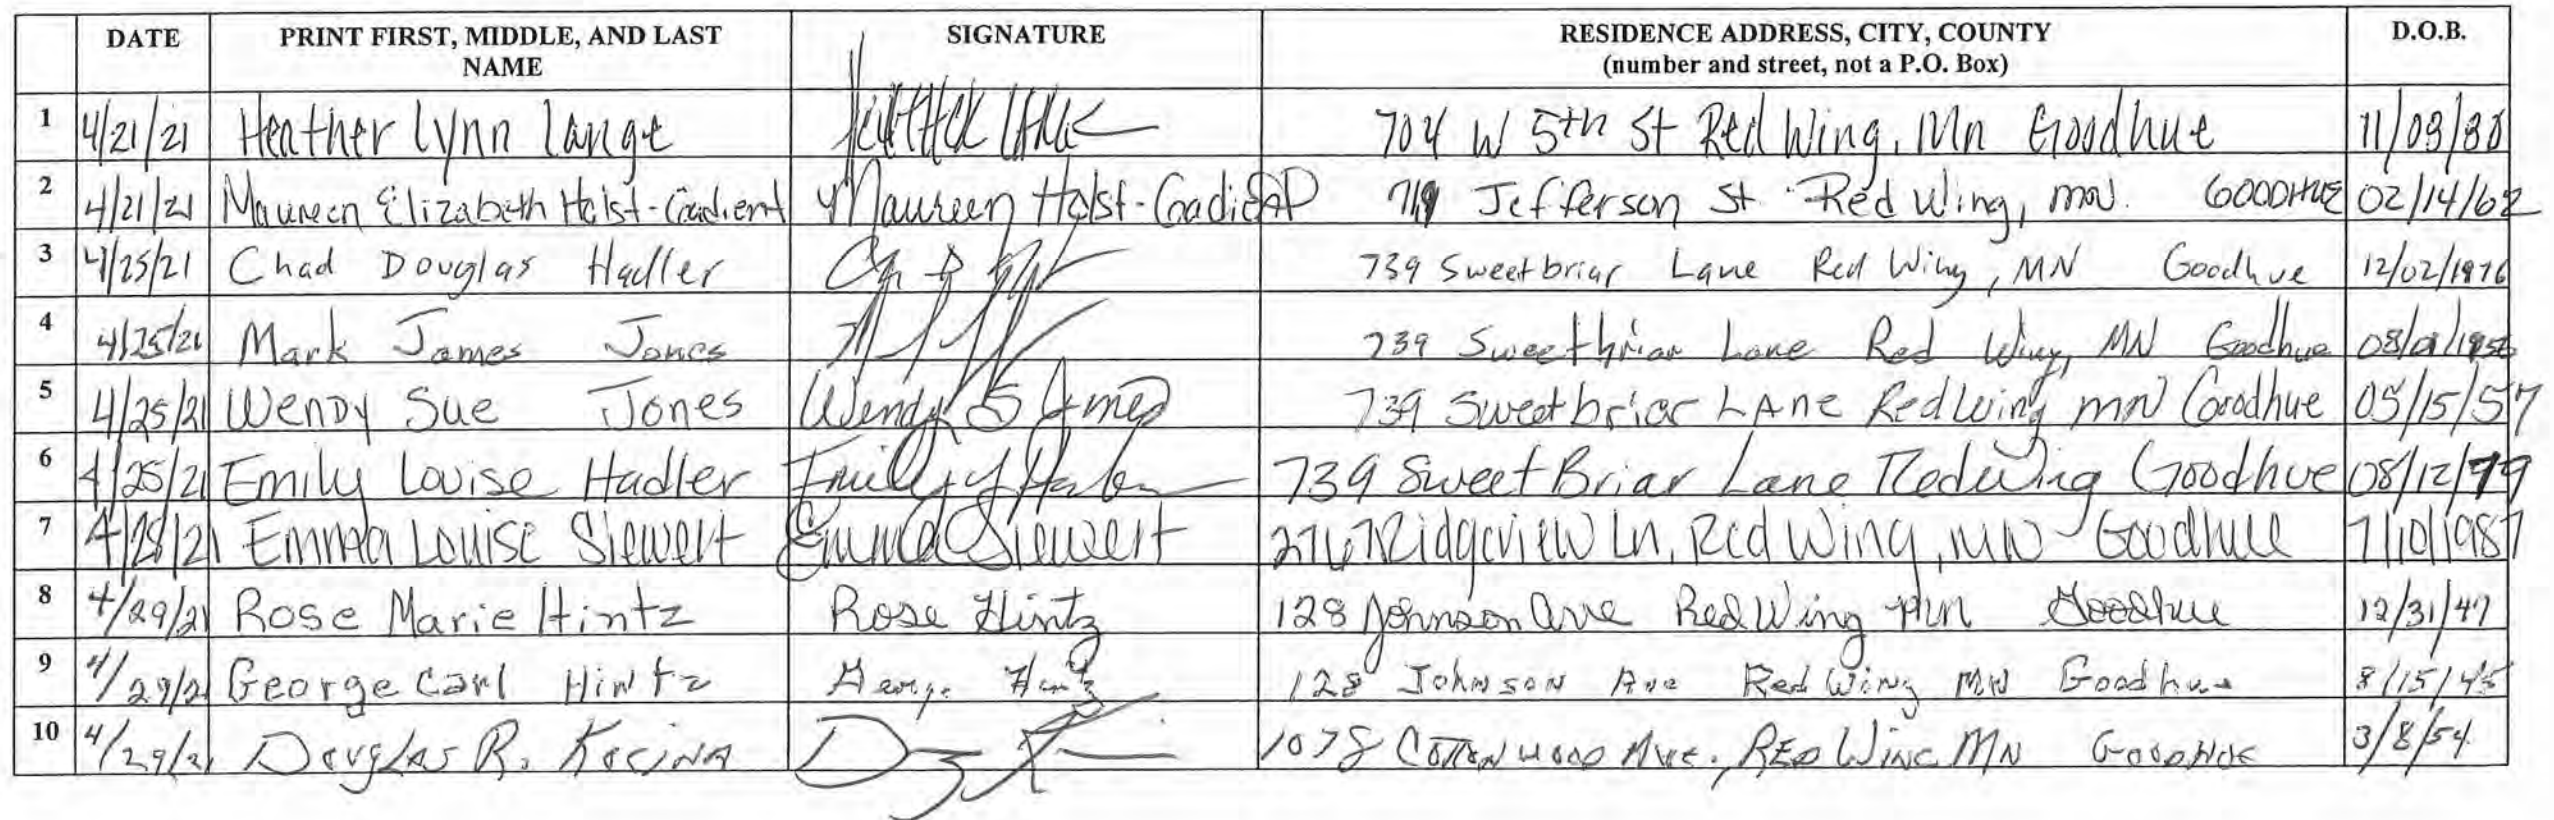 DATE PRINT FIRST, MIDDLE, AND LAST NAME SIGNATURE RESIDENCE ADDRESS, CITY, COUNTY (number and street, not a P.O. Box) D.O.B.
1 4/21/21 Heather Lynn Lange 704 W 5th St Red Wing, Mn Goodhue
2 4/21/21 Maureen Elizabeth Holst-Gadient Maureen Holst-Gadient Jefferson St Red Wing, MN. GOODHUE 02/14/62
3 4/25/21 Chad Douglas Hadler 739 Sweetbriar Lane Red Wing, MN Goodhue 12/02/1976
4 4/25/21 Mark James Jones 739 Sweetbriar Lane Red Wing, MN Goodhue
5 4/25/21 Wendy Sue Jones Wendy S Jones 739 Sweetbriar LAne RedWing MN Goodhue 05/15/57
6 4/25/21 Emily Louise Hadler Emily 739 Sweet Briar Lane Redwing Goodhue 08/12/79
7 4/28/21 Emma Louise Siewert Emma Siewert Ridgeview Ln, Red Wing, MN Goodhue 7/10/1987
8 4/29/21 Rose Marie Hintz Rose Hintz 128 Johnson Ave Red Wing MN Goodhue 12/31/47
9 4/29/21 George Carl Hintz George Hintz 128 Johnson Ave Red Wing MN Goodhue 8/15/45
10 4/29/21 Douglas R. Kocina 1078 Cottonwood Ave., RED WING MN GOODHUE 3/8/54